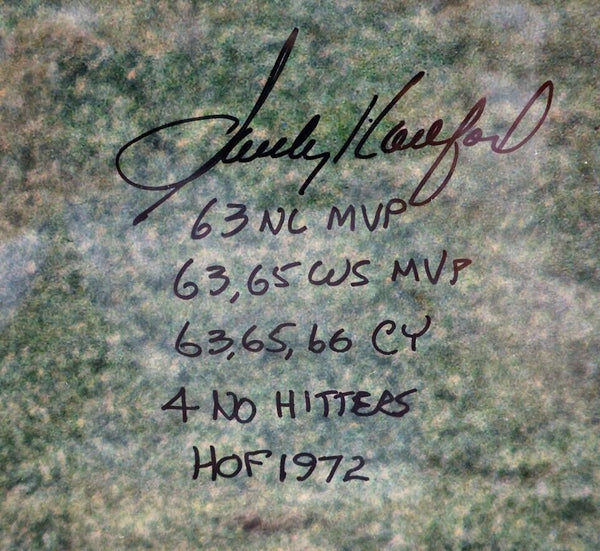 Sandy Koufax
63 NL MVP
63,65 WS MVP
63,65,66 CY
4 NO HITTERS
HOF 1972